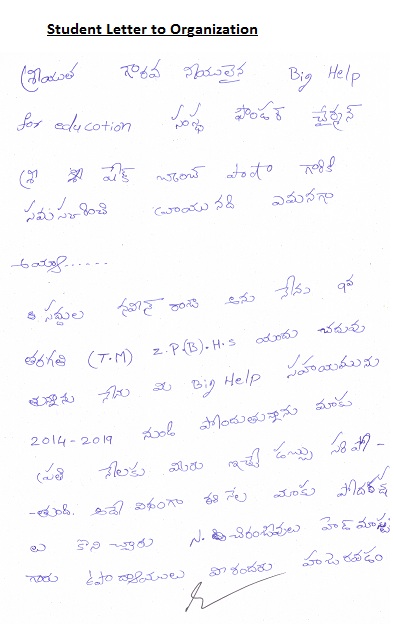 Student Letter to Organization
శ్రీయుత గౌరవ నీయులైన Big Help
for education సంస్థ ఫౌండర్ ఛైర్మన్
శ్రీ షేక్ చాంద్ పాషా గారికి
వ్రాయునది ఏమనగా
అయ్యా......
నవీన్ అను నేను 9వ
తరగతి (T.M) Z.P.(B).H.S యందు చదువు
తున్నాను నేను మీ Big Help సహాయమును
2014-2019 నుండి పొందుతున్నాను మాకు
ప్రతి నెలకు మీరు ఇచ్చే డబ్బు సరిపో-
-తుంది. అదే విధంగా ఈ నెల మాకు
లు కొని చ్చారు N. చిరంజీవులు హెడ్ మాష్ట
గారు ఉపాధ్యాయులు అందరు హాజరవడం